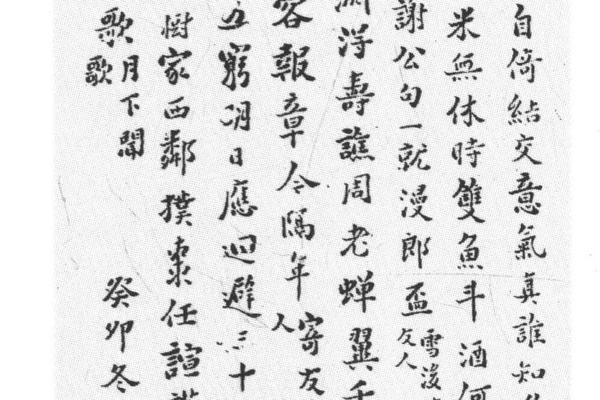 自倚結交意氣真誰知
米無休時雙魚斗酒何
謝公句一就漫郎盃雪後
友人
淂壽譙周老蟬翼千
容報章令隔年寄友
人
五窮明日應迴避三十
樹家西鄰撲棗任諠
歌月下聞
歌
癸卯冬